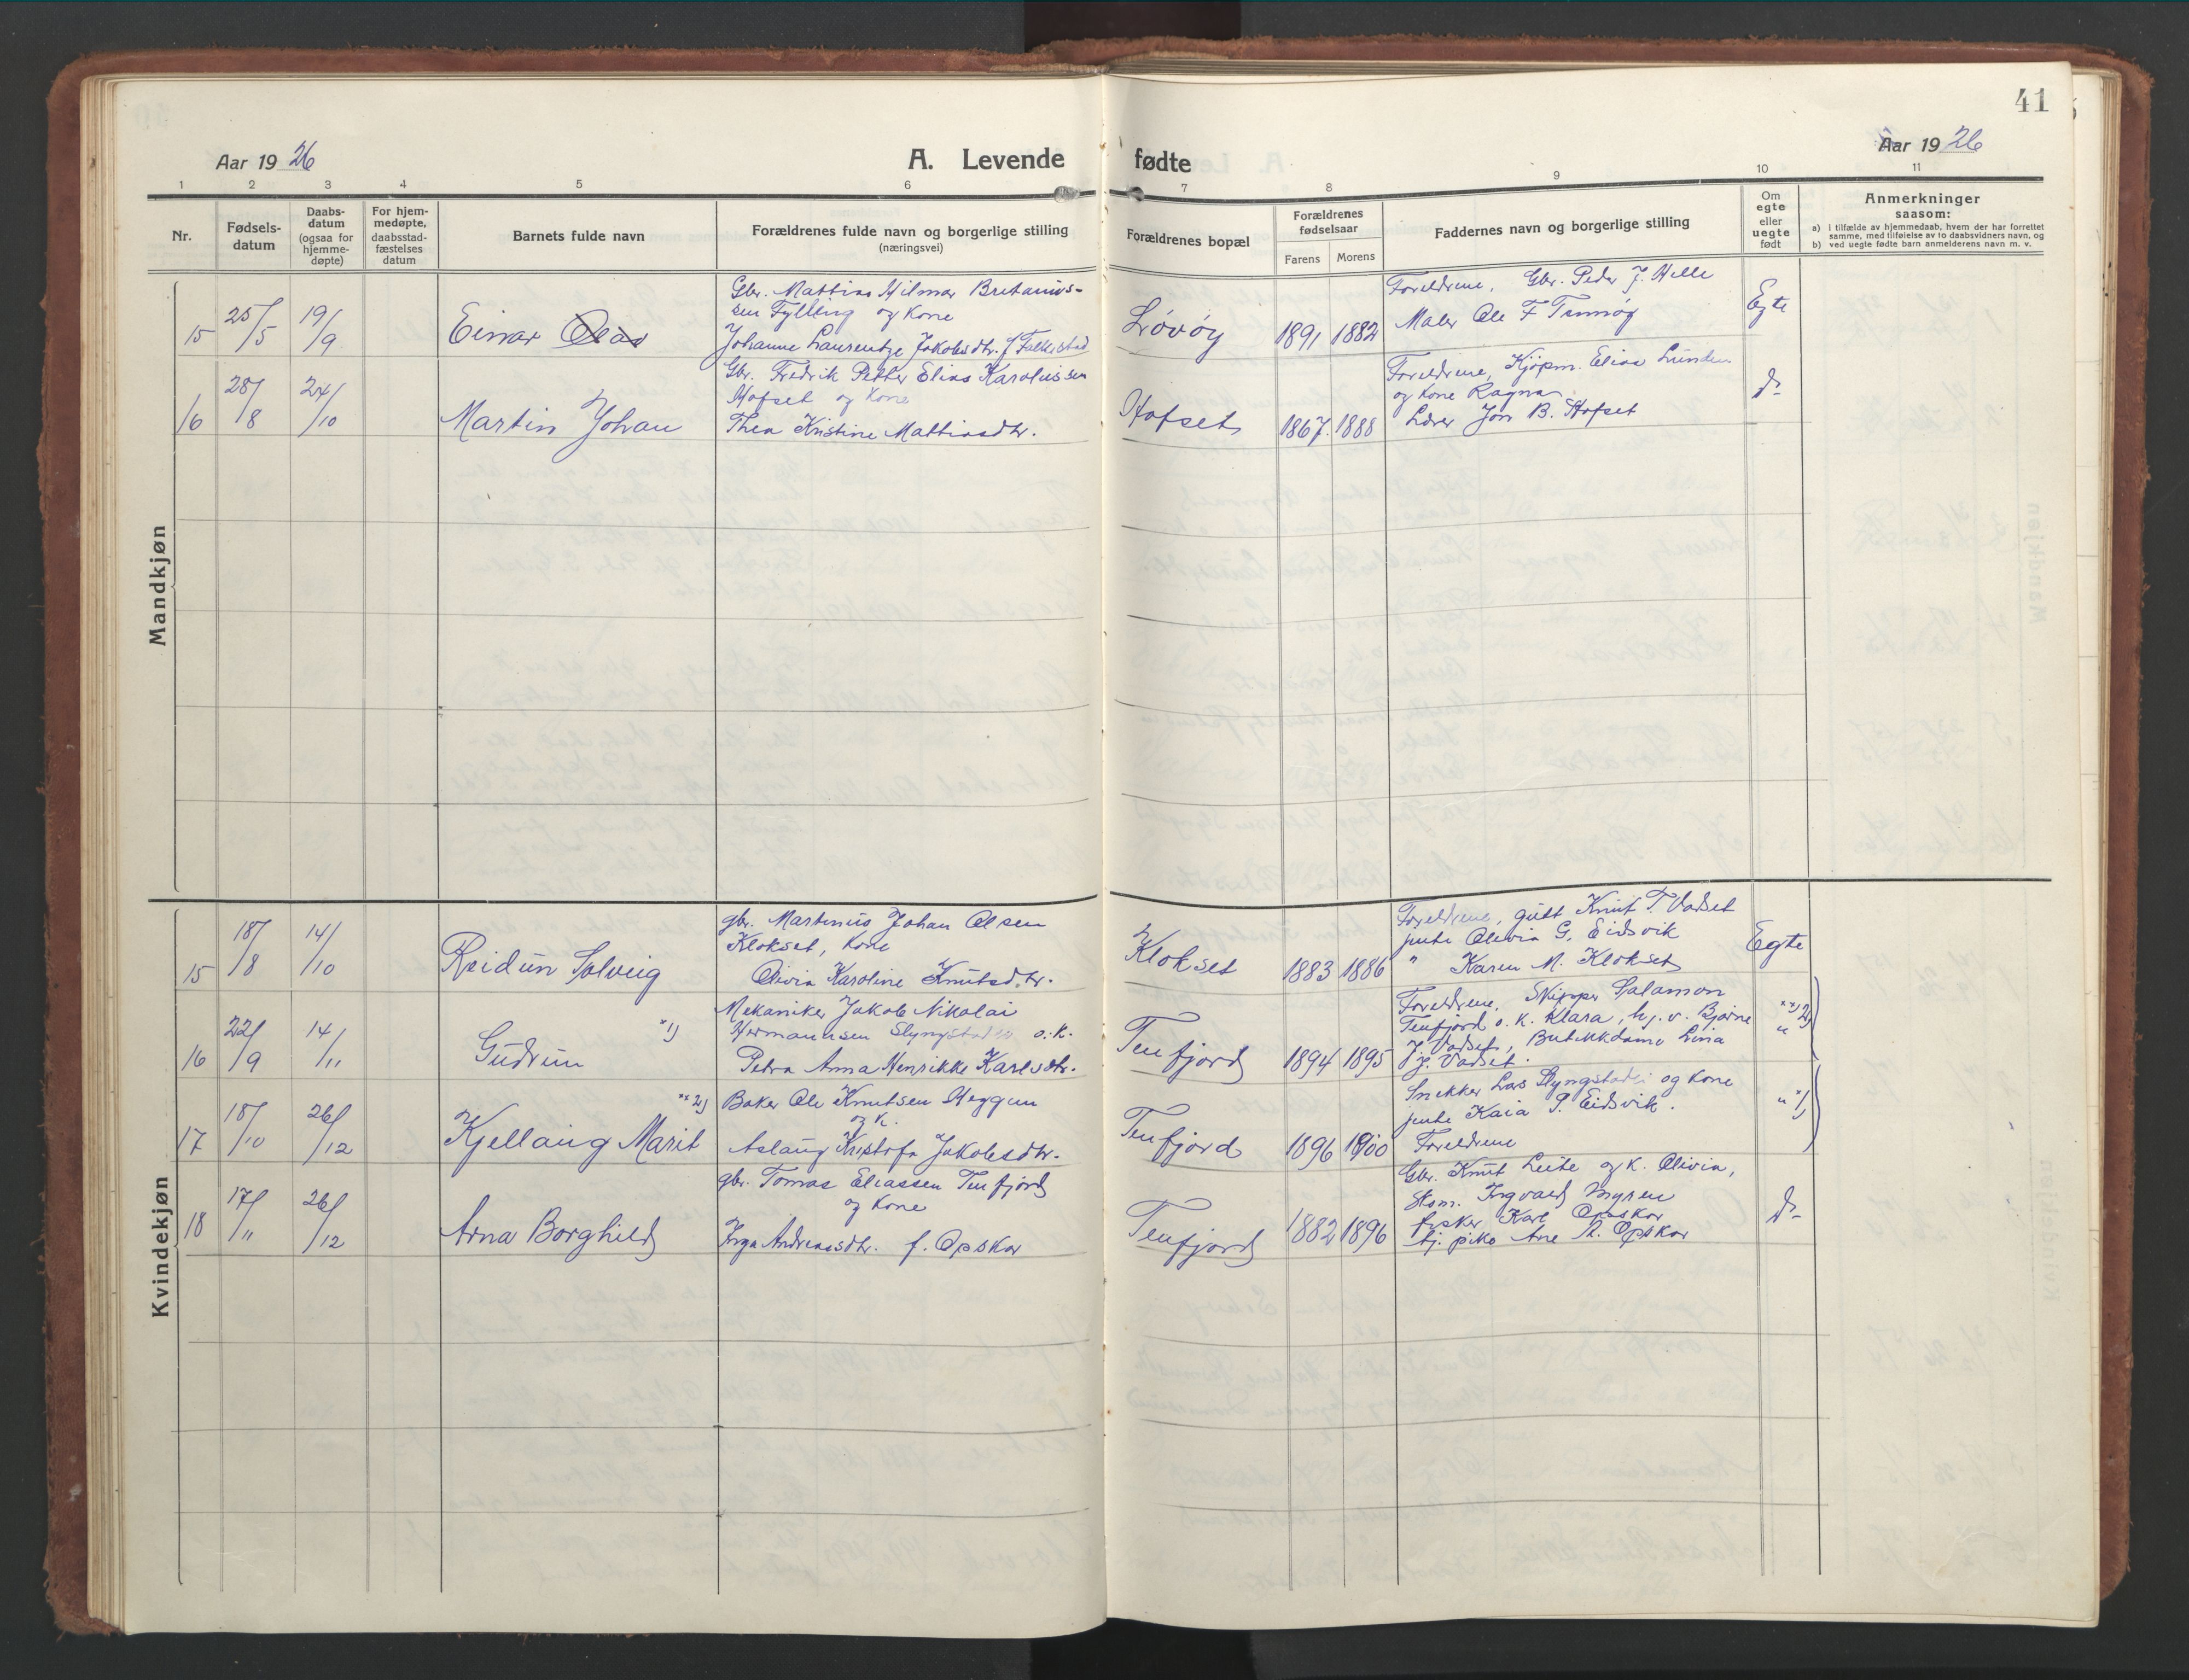 41
Aar 19 26
A. Levende fødte
Aar 19 26
1 2 3 4 5 6 7 8 9 10 11
Nr.
Fødsels-
datum
Daabs-
datum
(ogsaa for
hjemme-
døpte)
For hjem-
medøpte,
daabsstad-
fæstelses
datum
Barnets fulde navn
Forældrenes fulde navn og borgerlige stilling
(næringsvei)
Forældrenes bopæl
Forældrenes
fødselsaar
Farens Morens
Faddernes navn og borgerlige stilling
Om
egte
eller
uegte
født
Anmerkninger
saasom:
a) i tilfælde av hjemmedaab, hvem der har forrettet
samme, med tilføielse av to daabsvidners navn, og
b) ved uegte fødte barn anmelderens navn m. v.
Mandkjøn
15 25/5 19/9
Einar
Gbr. Mattias Hilmar Bretanius-
sen Fylling og kone
Johanne Laurentze Jakobsdtr. f Falkestad
Løvøy
1891 1882
Foreldrene, Gbr. Peder J. Helle
Maler Ole F
Egte
16 28/8 24/10
Martin Johan
Gbr. Fredrik Petter Elias Karolussen
Hofset og kone
Thea Kristine Mattiasdtr.
Hofset
1867. 1888
Foreldrene, Kjøpm. Elias
og kone Ragna
Lærer Jon B. Hofset
do
Kvindekjøn
15 18/8 14/10
Reidun Solveig
gbr. Martinus Johan Olsen
Klokset, kone
Olivia Karoline Knutsdtr.
Klokset
1883 1886
Foreldrene, gutt Knut T. Vadset
jente Olivia G. Eidsvik
" Karen M. Klokset
Egte
16 22/9 14/11
Gudrun *1)
Mekaniker Jakob Nikolai
Hermannsen Slyngstad o.k.
Petra Anna Henrikke Karlsdtr.
Tenfjord
1894 1895
Foreldrene, Skipper Salamon
Tenfjord o. k. Klara, hj. v. Bjarne
J. Vadset, Butikkdame Lina
J. Vadset.
**2)
"
17 18/10 26/12
Kjellaug Marit **2)
Baker Ole Knutsen Heggem
og k.
Aslaug Kristofa Jakobsdtr.
Tenfjord
1896 1900
Snekker Lars Slyngstad og kone
jente Kaia P. Eidsvik.
Foreldrene
" *1)
18 17/11 26/12
Arna Borghild
gbr. Tomas Eliassen Tenfjord
og kone
Inga Andreasdtr. f. Opskar
Tenfjord
1882 1896
Gbr. Knut Leite og k. Olivia,
Skom. Ingvald Myren
fisker Karl Opskar
tj. pike Ane A. Opskar
do